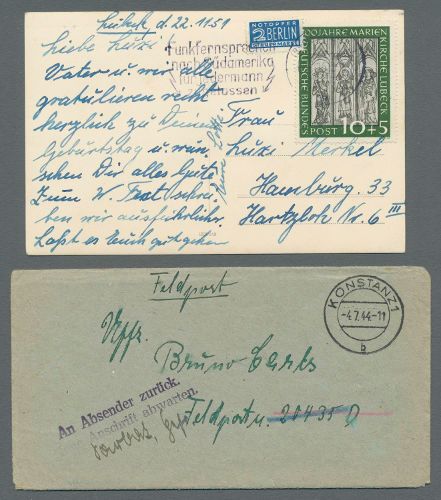 Lübeck d. 22.11.51
Liebe Luzi
Vater u. wir alle
gratulieren recht
herzlich zu Deinem
Geburtstag u. wün-
schen Dir alles Gute
Zum W. Fest schrei-
ben wir ausführlicher.
Laßt es Euch gut gehen
NOTOPFER
2 BERLIN
STEUERMARKE
Funkfernsprechen
nach Südamerika
für jedermann
zugelassen
700 JAHRE MARIENKIRCHE LÜBECK
DEUTSCHE BUNDESPOST 10+5
Frau
Luzi Merkel
Hamburg 33
Hartzloh Nr. 6 III
Feldpost
KONSTANZ 1
-4.7.44.-11
b
Bruno
Feldpostn. 20435 D
An Absender zurück.
Anschrift abwarten.